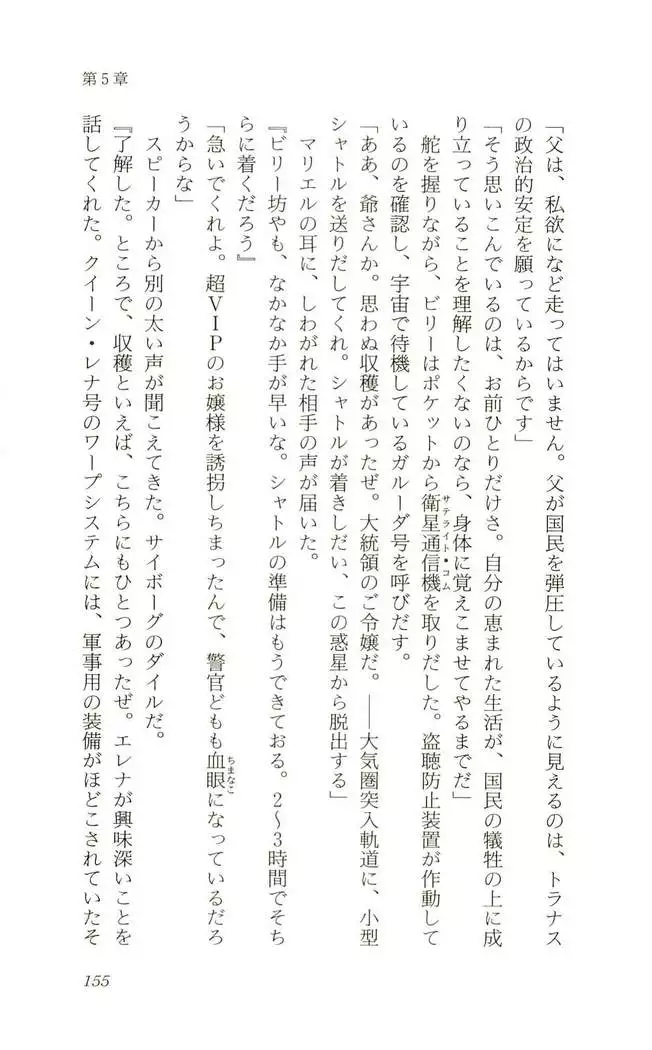 第5章
「父は、私欲になど走ってはいません。父が国民を弾圧しているように見えるのは、トラナス
の政治的安定を願っているからです」
「そう思いこんでいるのは、お前ひとりだけさ。自分の恵まれた生活が、国民の犠牲の上に成
り立っていることを理解したくないのなら、身体に覚えこませてやるまでだ」
舵を握りながら、ビリーはポケットから衛星通信機を取りだした。盗聴防止装置が作動して
サテライト・コム
いるのを確認し、宇宙で待機しているガルーダ号を呼びだす。
「ああ、爺さんか。思わぬ収穫があったぜ。大統領のご令嬢だ。――大気圏突入軌道に、小型
シャトルを送りだしてくれ。シャトルが着きしだい、この惑星から脱出する」
マリエルの耳に、しわがれた相手の声が届いた。
『ビリー坊やも、なかなか手が早いな。シャトルの準備はもうできておる。2〜3時間でそち
らに着くだろう』
「急いでくれよ。超VIPのお嬢様を誘拐しちまったんで、警官どもも血眼になっているだろ
ちまなこ
うからな」
スピーカーから別の太い声が聞こえてきた。サイボーグのダイルだ。
『了解した。ところで、収穫といえば、こちらにもひとつあったぜ。エレナが興味深いことを
話してくれた。クイーン・レナ号のワープシステムには、軍事用の装備がほどこされていたそ
155